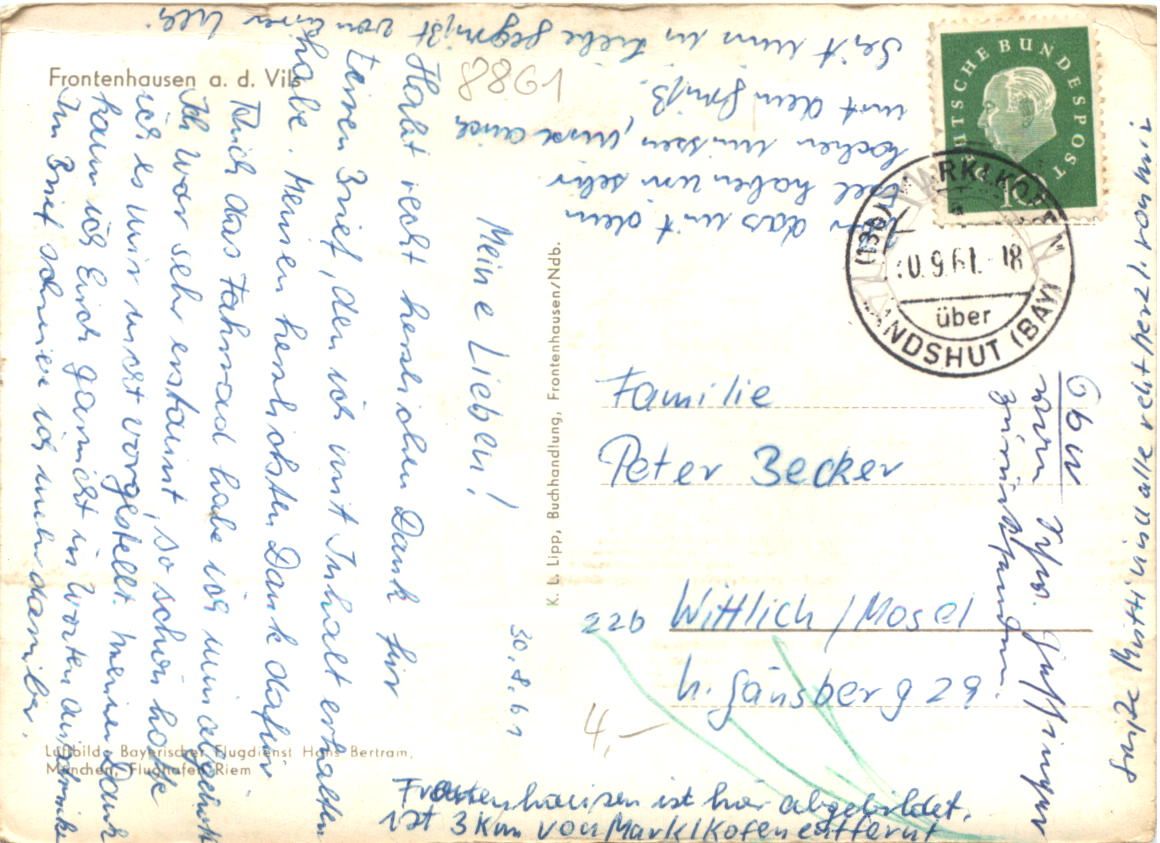 Frontenhausen a. d. Vils
8861
Meine Lieben!
30.8.61
Habt recht herzlichen Dank für
Euren Brief, den ich mit Inhalt erhalten
habe. Meinen herzlichsten Dank dafür.
Auch das Fahrrad habe ich nun abgeholt
Ich war sehr erstaunt, so schön hatte
ich es mir nicht vorgestellt. Meinen Dank
kann ich Euch garnicht in Worten ausdrücken
Im Brief schreibe ich mehr darüber.
über das mit dem
Esel haben wir sehr
lachen müssen,
mit dem
Seid nun in Liebe gegrüßt von Eurer
K. L. Lipp, Buchhandlung, Frontenhausen/Ndb.
DEUTSCHE BUNDESPOST
10
(13b) MARKLKOFEN
0.9.61.-18
über
LANDSHUT (BAY)
Familie
Peter Becker
22b Wittlich / Mosel
h. Gänsberg 29
4,-
Grüße Mutti und alle recht herzl. von mir
Luftbild: Bayerischer Flugdienst Hans Bertram,
München, Flughafen Riem
Frontenhausen ist hier abgebildet,
ist 3 km von Marklkofen entfernt